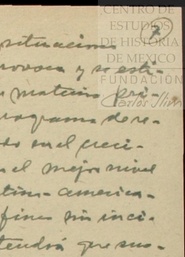 CENTRO DE
ESTUDIOS
DE HISTORIA
DE MEXICO
FUNDACIÓN
Carlos Slim
2
situaciones
provoca y se esti-
materia pri-
programa de re-
do en el creci-
el mejor nivel
latino-america-
fines sin inci-
tendrá que sus-